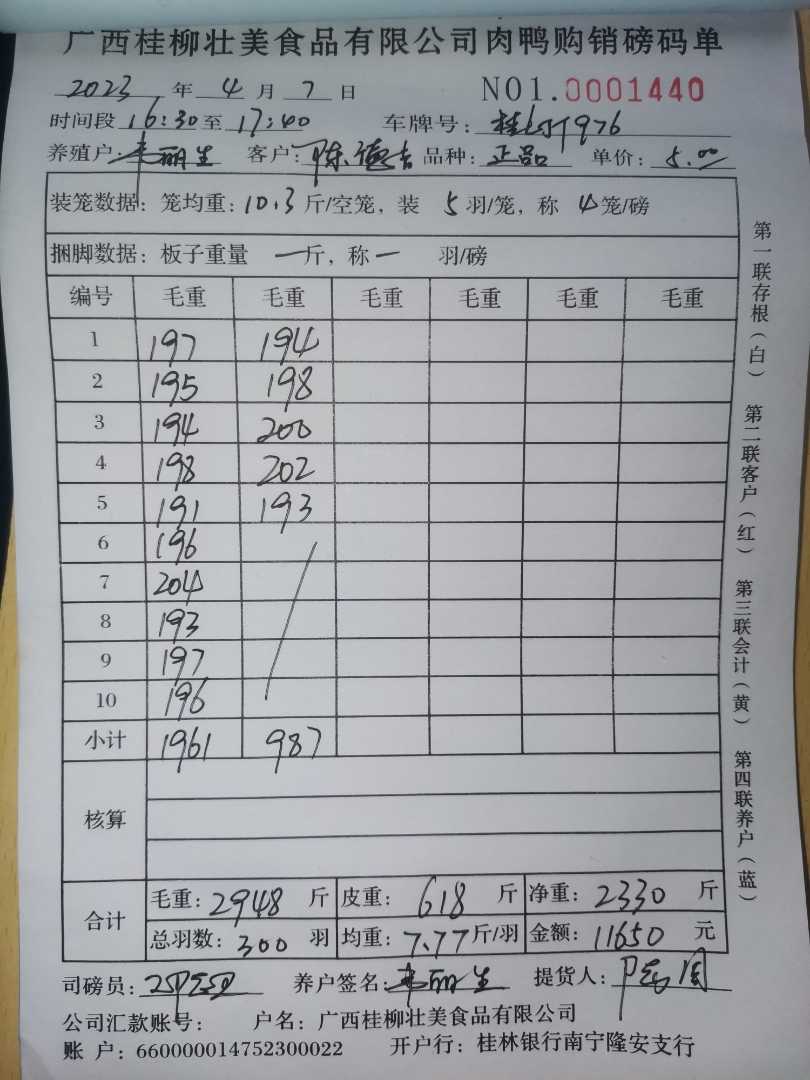 广西桂柳壮美食品有限公司肉鸭购销磅码单
2023 年 4 月 7 日 NO1.0001440
时间段 16:30 至 17:40 车牌号: 976
养殖户: 丽生 客户: 陈德吉 品种: 正品 单价: 5.00
装笼数据: 笼均重: 10.3 斤/空笼, 装 5 羽/笼, 称 4 笼/磅
捆脚数据: 板子重量 一 斤, 称 一 羽/磅
编号 毛重 毛重 毛重 毛重 毛重 毛重
1 197 194
2 195 198
3 194 200
4 198 202
5 191 193
6 196
7 204
8 193
9 197
10 196
小计 1961 987
核算
合计 毛重: 2948 斤 皮重: 618 斤 净重: 2330 斤
总羽数: 300 羽 均重: 7.77 斤/羽 金额: 11650 元
司磅员: 养户签名: 丽生 提货人:
公司汇款账号: 户名: 广西桂柳壮美食品有限公司
账 户: 660000014752300022 开户行: 桂林银行南宁隆安支行
第一联存根(白) 第二联客户(红) 第三联会计(黄) 第四联养户(蓝)